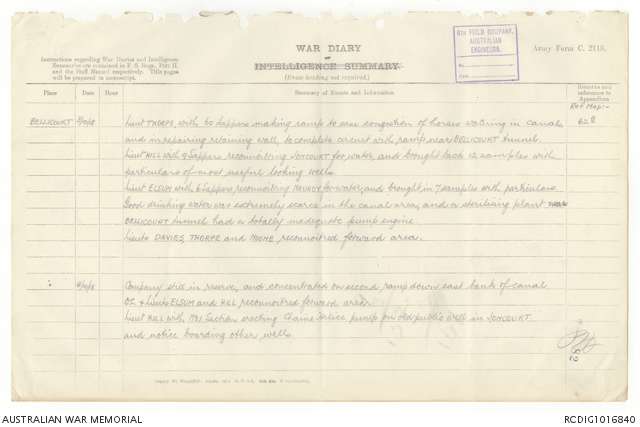 WAR DIARY
or
INTELLIGENCE SUMMARY
(Erase heading not required.)
Instructions regarding War Diaries and Intelligence
Summaries are contained in F. S. Regs., Part II.
and the Staff Manual respectively. Title pages
will be prepared in manuscript.
8TH FIELD COMPANY,
AUSTRALIAN
ENGINEERS.
No.
Date
Army Form C. 2118.
Place Date Hour Summary of Events and Information Remarks and references to Appendices
Ref Map:-
BELLICOURT 3/10/18 Lieut THORPE, with 60 Sappers making ramp to ease congestion of horses watering in canal 62B
and in repairing retaining wall, to complete circuit with ramp near BELLICOURT tunnel.
Lieut HILL with 9 Sappers reconnoitring JONCOURT for water, and brought back 12 samples with
particulars of most useful looking wells.
Lieut ELSUM with 6 Sappers reconnoitring NAUROY for water, and brought in 7 samples with particulars.
Good drinking water was extremely scarce in the canal area, and a sterilising plant
BELLICOURT tunnel had a totally inadequate pump engine.
Lieuts DAVIES, THORPE and reconnoitred forward area.
" 4/10/18 Company still in reserve, and concentrated on second ramp down east bank of canal
OC & Lieuts ELSUM and HILL reconnoitred forward area.
Lieut HILL with No1 Section erecting Chaine Helice pump on old public well in JONCOURT
and notice boarding other wells.
AUSTRALIAN WAR MEMORIAL
RCDIG1016840